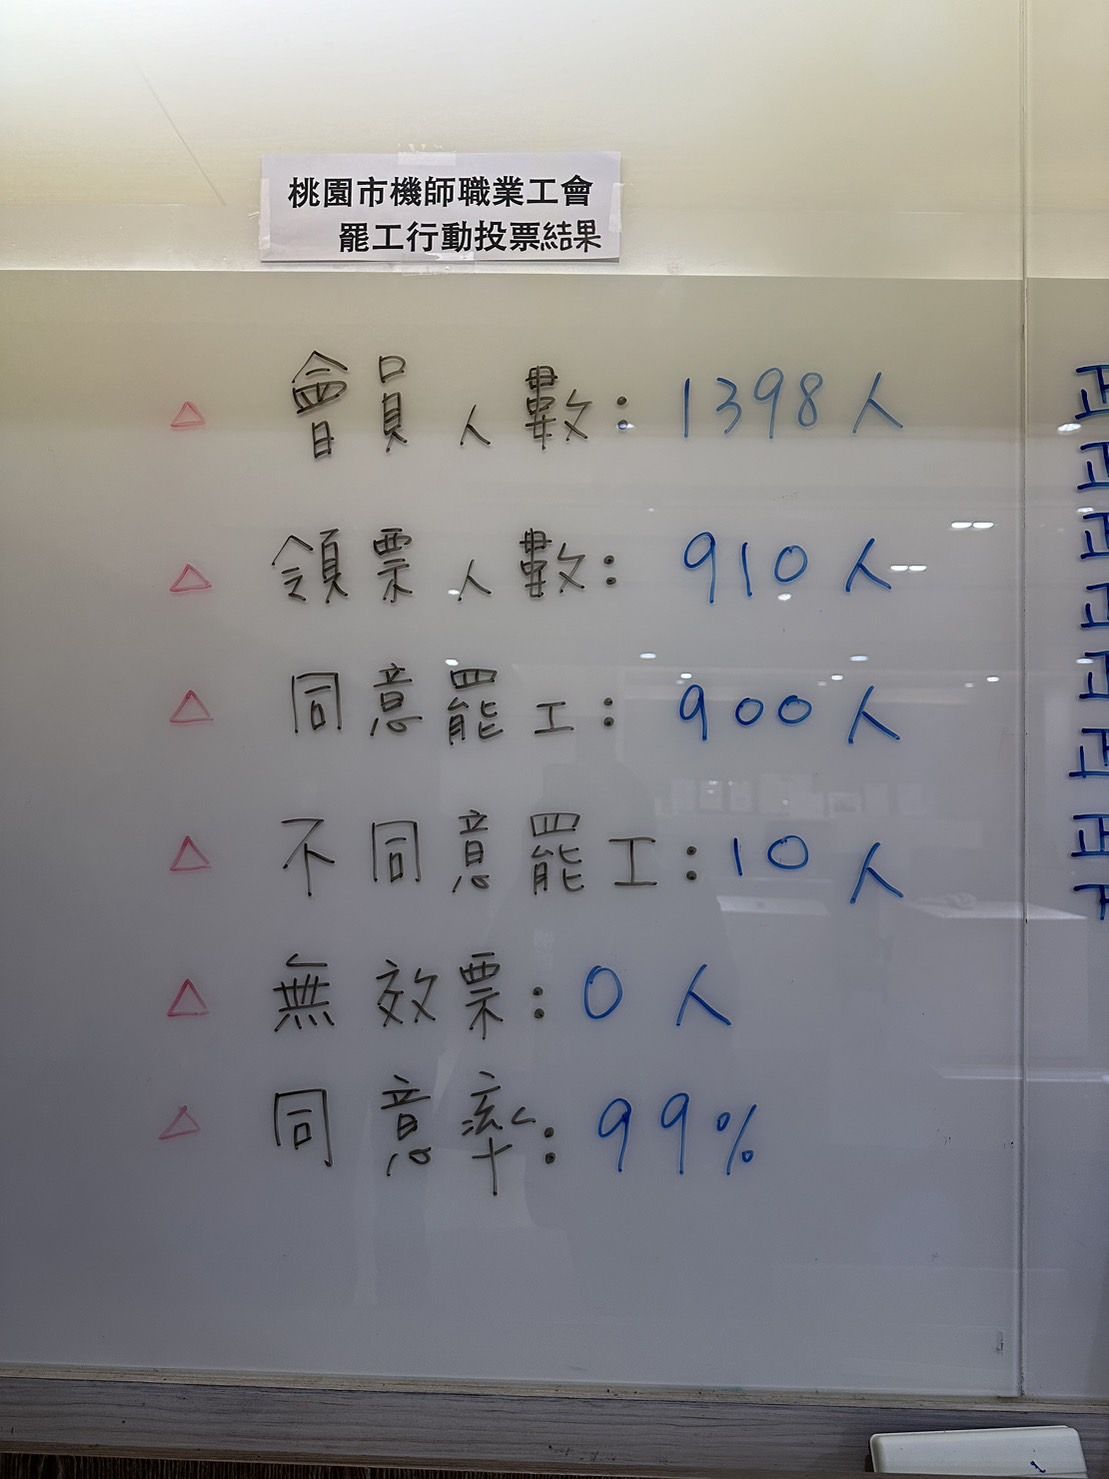 桃園市機師職業工會
罷工行動投票結果
△ 會員人數：1398人
△ 領票人數：910人
△ 同意罷工：900人
△ 不同意罷工：10人
△ 無效票：0人
△ 同意率：99%
正
正
正
正
正
正
正